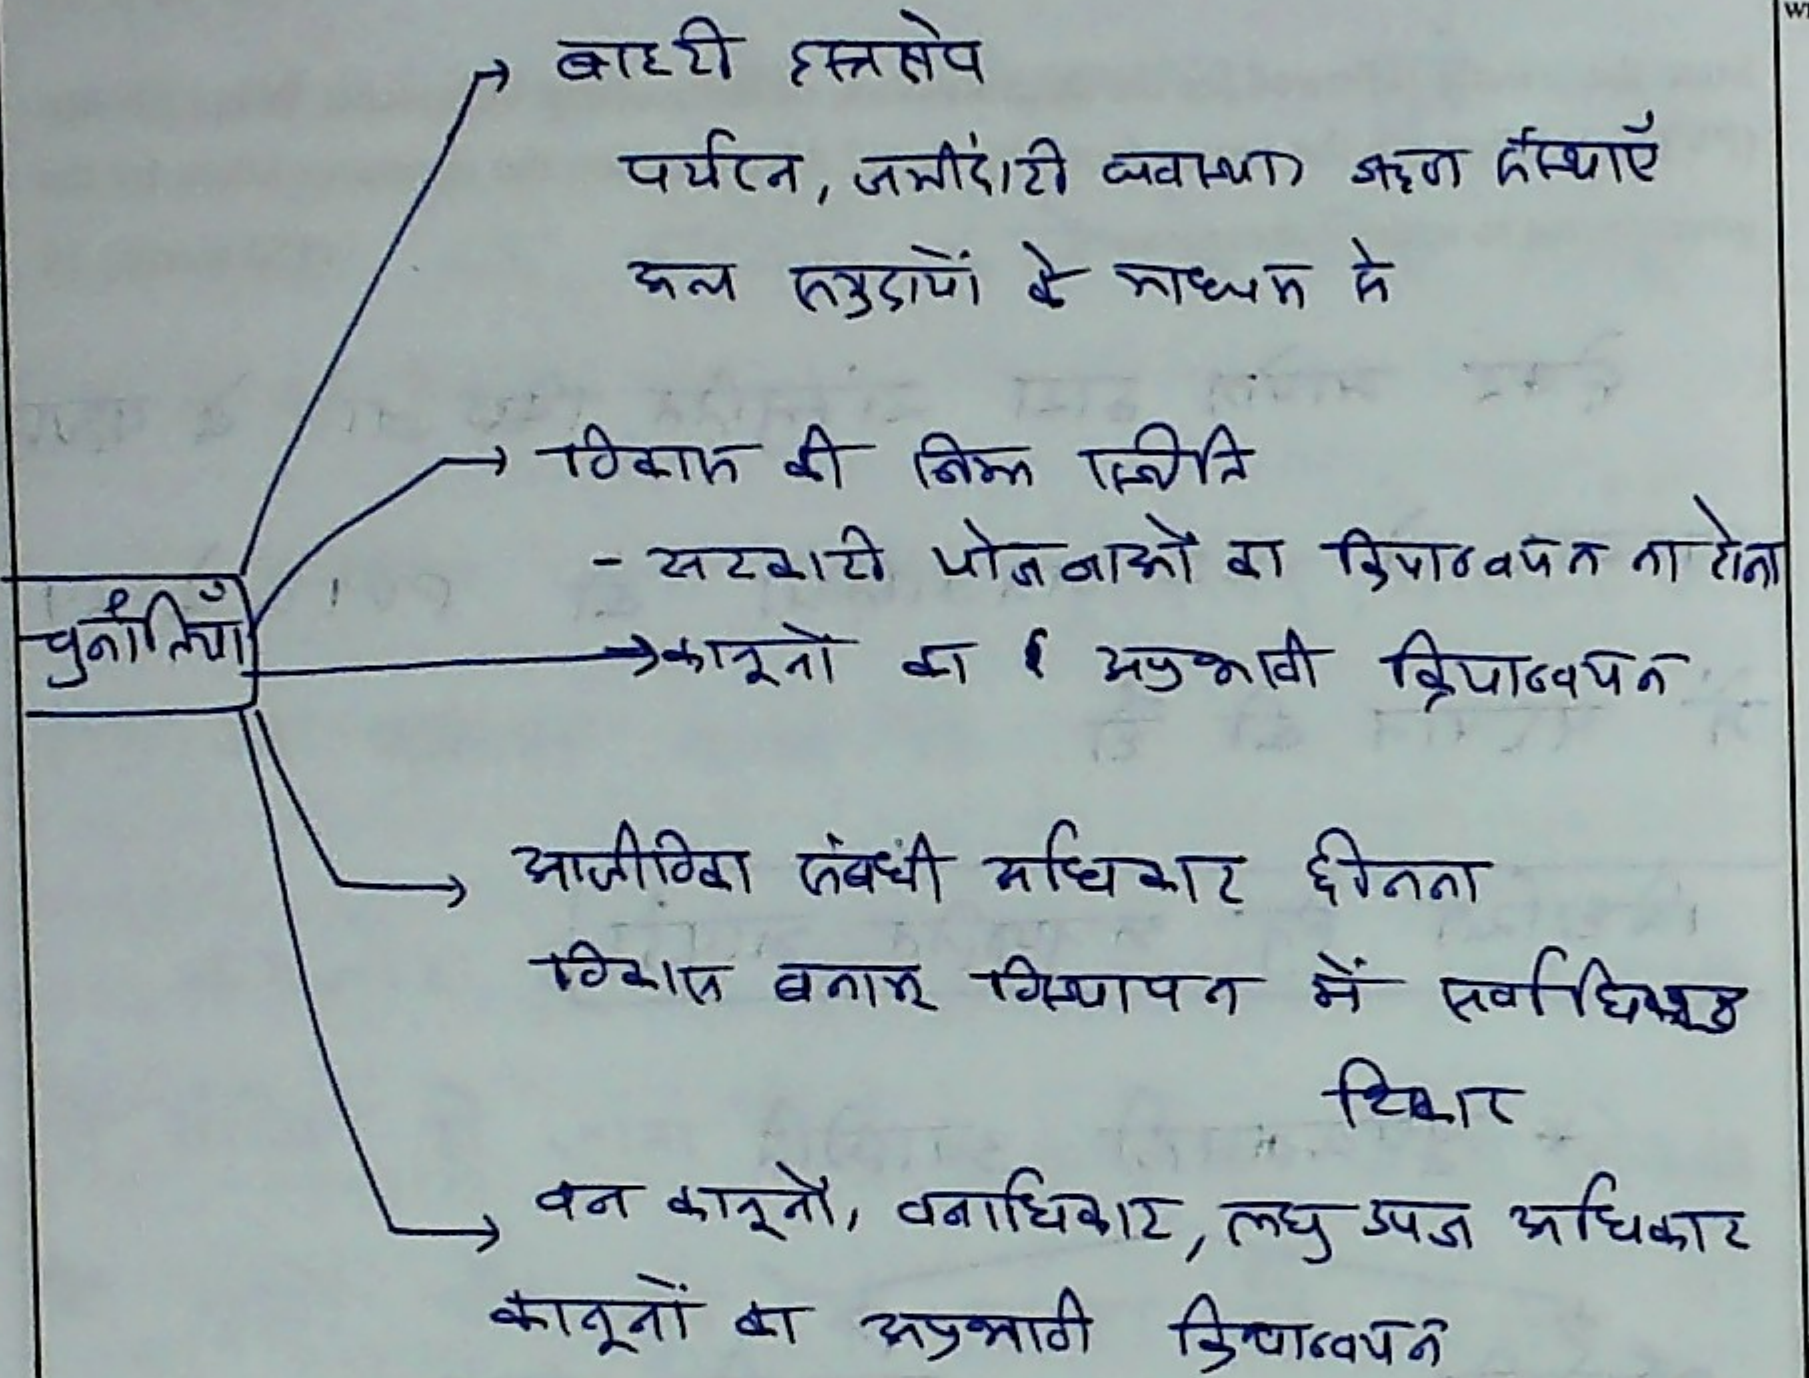 बाहरी हस्तक्षेप
पर्यटन, जमींदारी व्यवस्था, ऋण संस्थाएँ
अन्य समुदायों के माध्यम से
विकास की निम्न स्थिति
- सरकारी योजनाओं का क्रियान्वयन ना होना
चुनौतियाँ
कानूनों का अप्रभावी क्रियान्वयन
आजीविका संबंधी अधिकार छीनना
विकास बनाम विस्थापन में सर्वाधिक
शिकार
वन कानूनों, वनाधिकार, लघु उपज अधिकार
कानूनों का अप्रभावी क्रियान्वयन